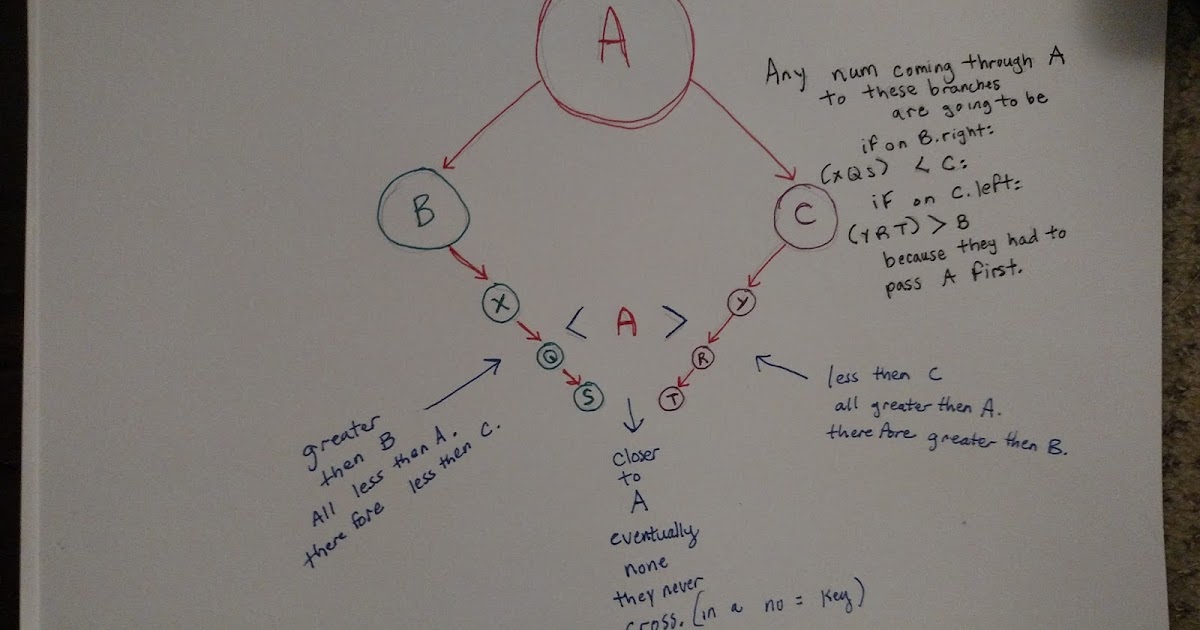 A
Any num coming through A
to these branches
are going to be
if on B.right:
(XQS) < C:
if on C.left:
(YRT) > B
because they had to
pass A first.
B
C
X
Y
< A >
Q
R
S
T
greater
then B
All less than A.
there fore less then C.
less then C
all greater then A.
therefore greater then B.
closer
to
A
eventually
none
they never
cross. (in a no = key)